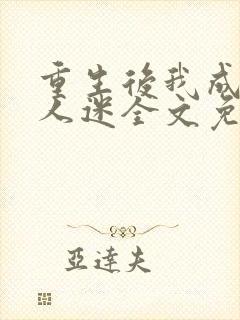 重生後我成
人迷全文免
亞達夫